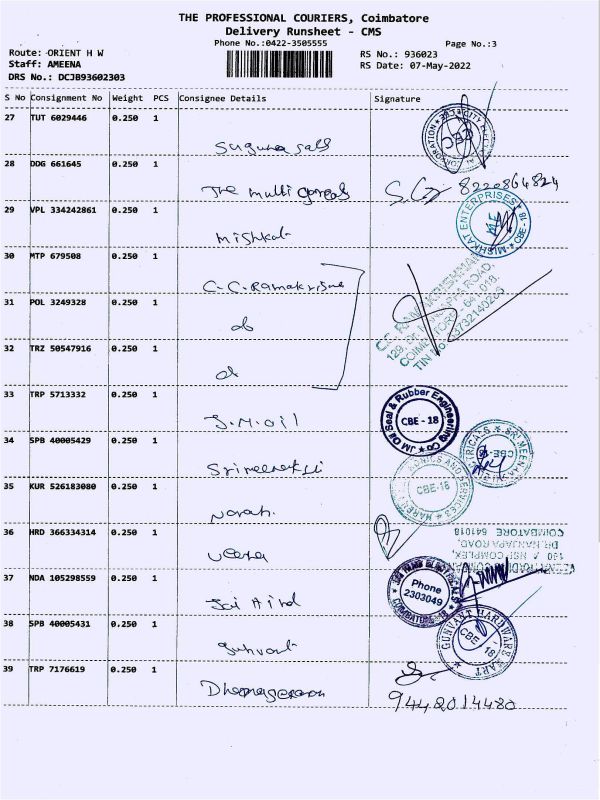 THE PROFESSIONAL COURIERS, Coimbatore
Delivery Runsheet - CMS
Phone No.:0422-3505555
Page No.:3
Route: ORIENT H W
RS No.: 936023
Staff: AMEENA
RS Date: 07-May-2022
DRS No.: DCJB93602303
S No Consignment No Weight PCS Consignee Details Signature
27 TUT 6029446 0.250 1
CEC
28 DDG 661645 0.250 1
The multi
8220864824
29 VPL 334242861 0.250 1
Mishkat
MISHKAT ENTERPRISES
ME
CBE - 18
30 MTP 679508 0.250 1
C.C. Ramakrishna
C.C. RAMAKRISHNAN
COIMBATORE - 641 018.
31 POL 3249328 0.250 1
do
32 TRZ 50547916 0.250 1
do
33 TRP 5713332 0.250 1
J.M. oil
JM Oil Seal & Rubber Engineering Co
CBE - 18
34 SPB 40005429 0.250 1
Srimeenakshi
35 KUR 526183080 0.250 1
CBE-18
36 HRD 366334314 0.250 1
Veena
DR. NANJAPPA ROAD,
COIMBATORE 641018
37 NDA 105298559 0.250 1
Jai Hind
Phone
2303049
COIMBATORE - 18
38 SPB 40005431 0.250 1
Gunvant
GUNVANT HARDWARE MART
CBE - 18
39 TRP 7176619 0.250 1
9442014480